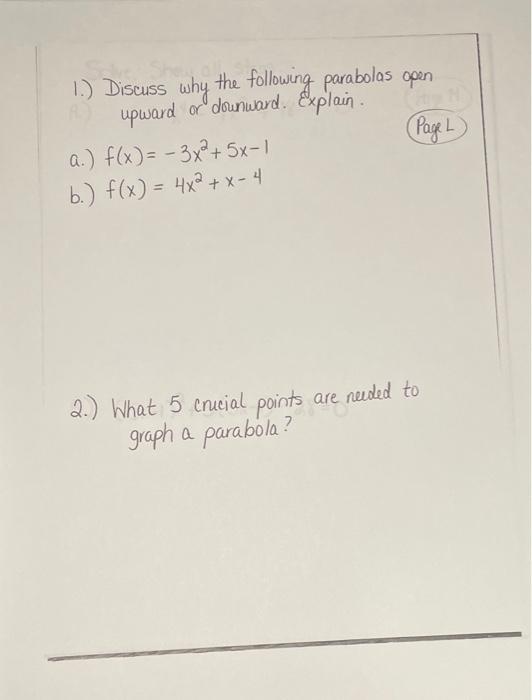 1.) Discuss why the following parabolas open
upward or downward. Explain.
Page L
a.) f(x) = -3x² + 5x-1
b.) f(x) = 4x² + x - 4
2.) What 5 crucial points are needed to
graph a parabola?